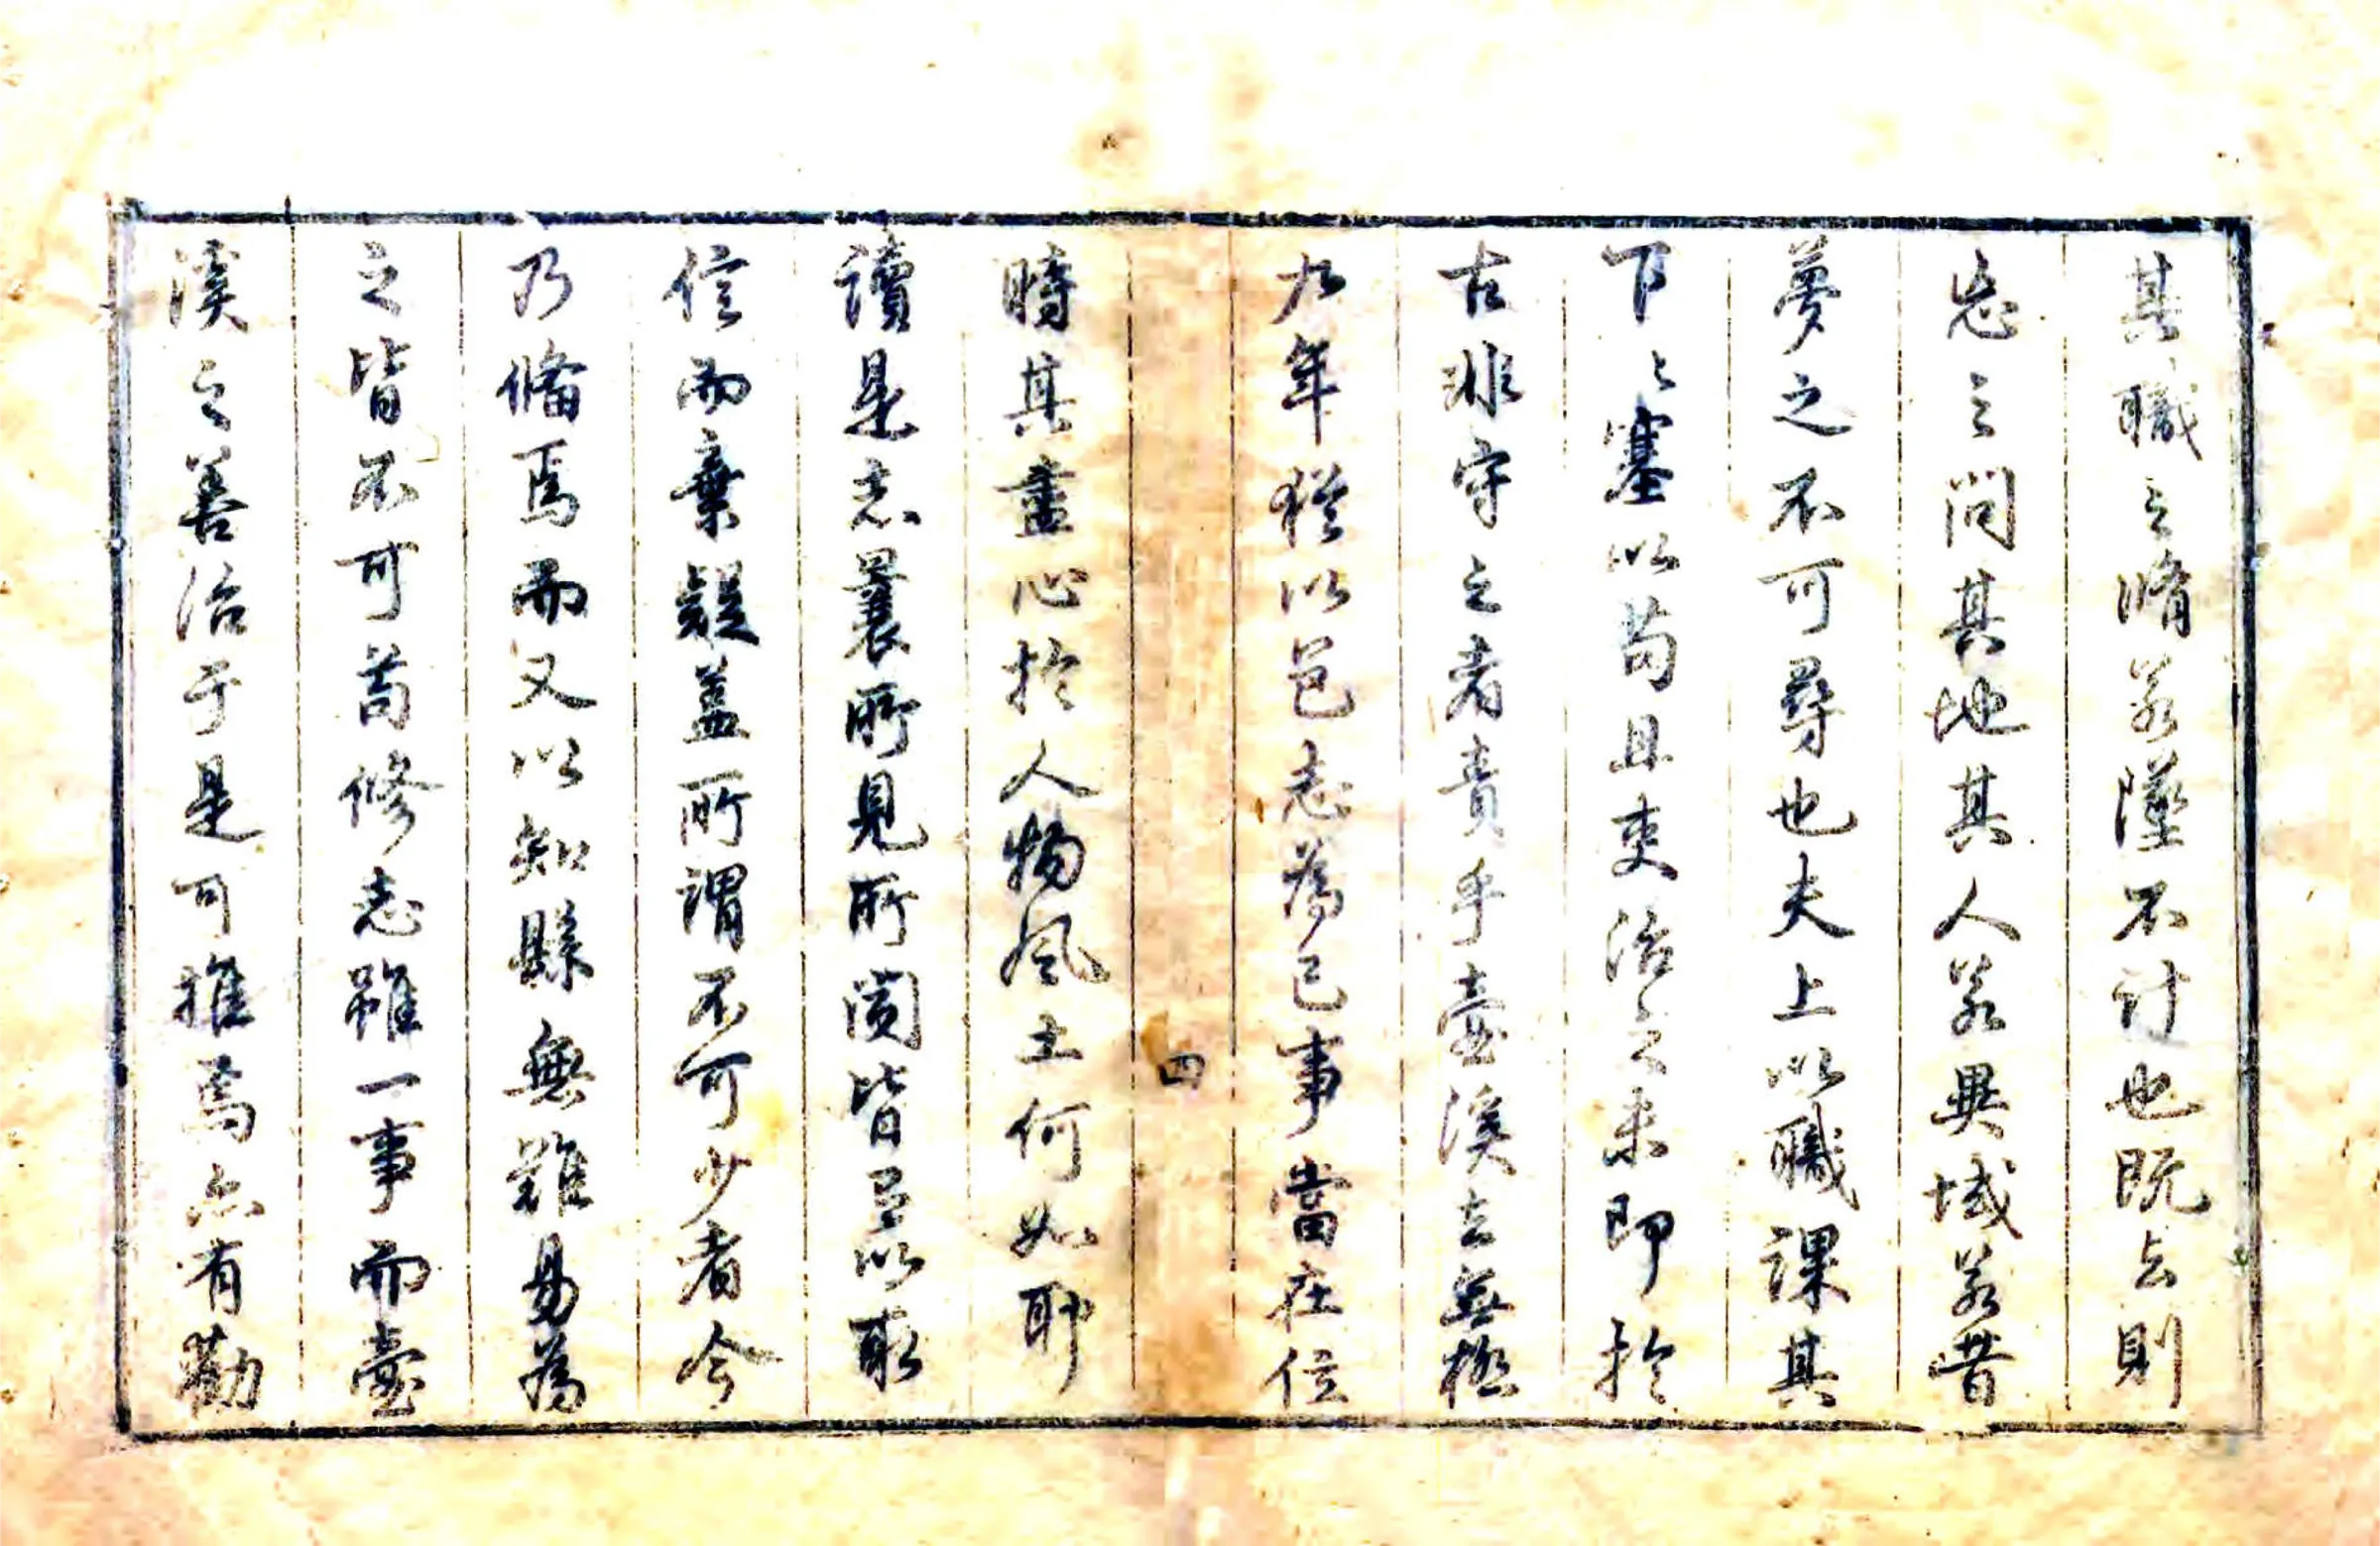 其職之脩若墜不計也既去則
忘之問其地其人若異域若昔
夢之不可尋也夫上以職課其
下〻塞以苟且吏治之未即於
古非守之者責乎臺溪去無極
九年猶以邑志為己事當在位
四
時其盡心於人物風土何如耶
讀是志曩所見所聞皆足以取
信而棄疑蓋所謂不可少者今
乃備焉而又以知縣無難易為
之皆不可苟修志雖一事而臺
溪之善治于是可推焉亦有勸